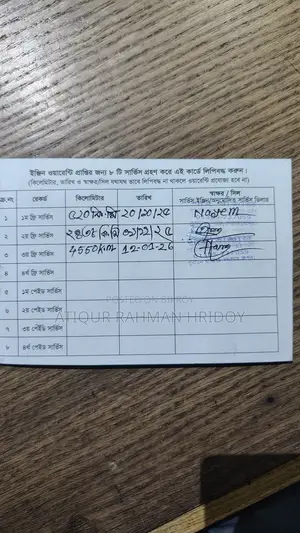 ইঞ্জিন ওয়ারেন্টি প্রাপ্তির জন্য ৮ টি সার্ভিস গ্রহণ করে এই কার্ডে লিপিবদ্ধ করুন।
(কিলোমিটার, তারিখ ও স্বাক্ষর/সিল যথাযথ ভাবে লিপিবদ্ধ না থাকলে ওয়ারেন্টি প্রযোজ্য হবে না)
ক্র.নং রেকর্ড কিলোমিটার তারিখ স্বাক্ষর / সিল
সার্ভিস ইঞ্জি:/অনুমোদিত সার্ভিস ডিলার
১ ১ম ফ্রি সার্ভিস ৫২০ কি:মি ২০/১০/২৫ Nayem
২ ২য় ফ্রি সার্ভিস কি:মি
৩ ৩য় ফ্রি সার্ভিস 4550km 12-01-26
৪ ৪র্থ ফ্রি সার্ভিস
৫ ১ম পেইড সার্ভিস
৬ ২য় পেইড সার্ভিস
৭ ৩য় পেইড সার্ভিস
৮ ৪র্থ পেইড সার্ভিস
POSTED ON BIKROY
ATIQUR RAHMAN HRIDOY